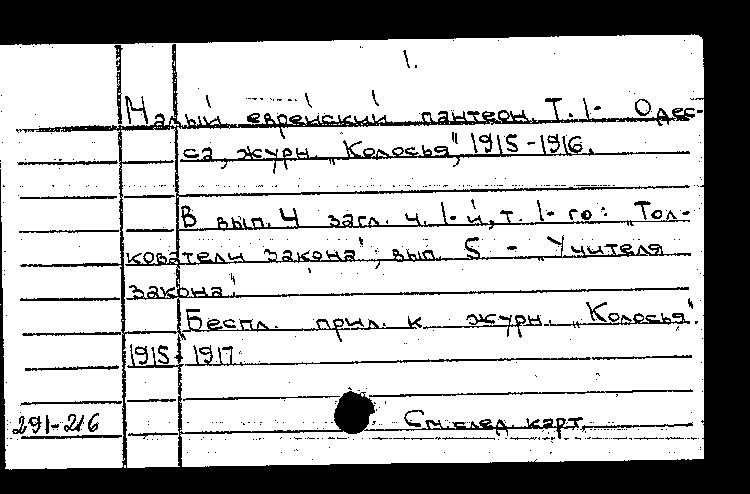 1.
Малый еврейский пантеон. Т. 1- Одес-
са, журн. „Колосья", 1915-1916.
В вып. 4 загл. ч. 1-й, т. 1-го: „Тол-
кователи закона"; вып. 5 - „Учителя
закона".
Беспл. прил. к журн. „Колосья".
1915-1917.
291-216 См. след. карт.